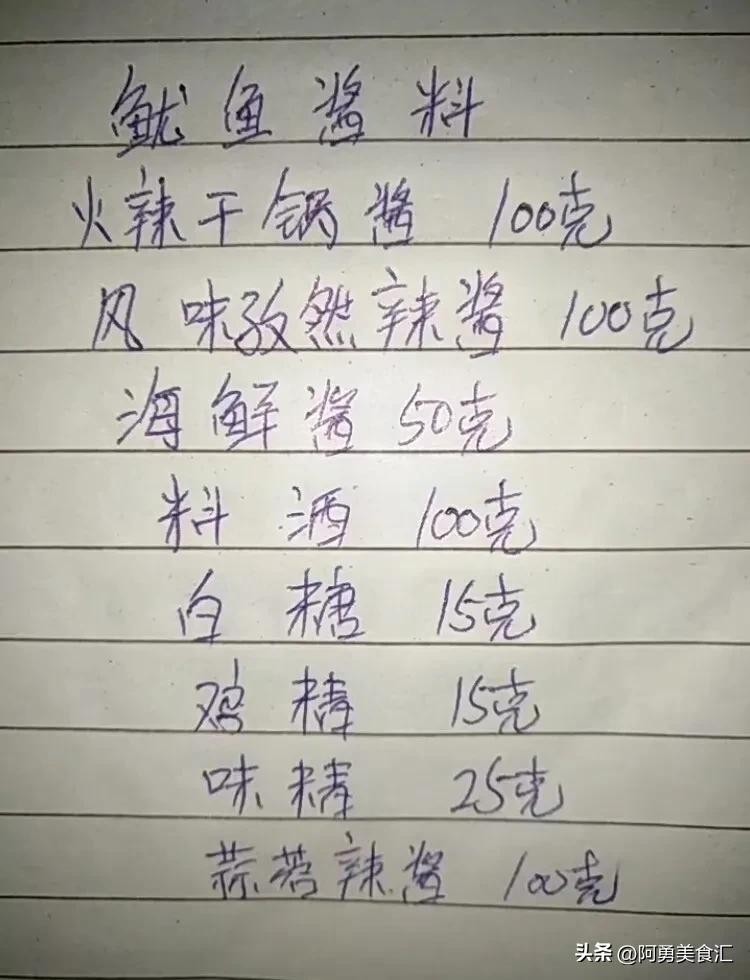 鱿鱼酱料
火辣干锅酱 100克
风味孜然辣酱 100克
海鲜酱 50克
料酒 100克
白糖 15克
鸡精 15克
味精 25克
蒜蓉辣酱 100克
头条 @阿勇美食汇